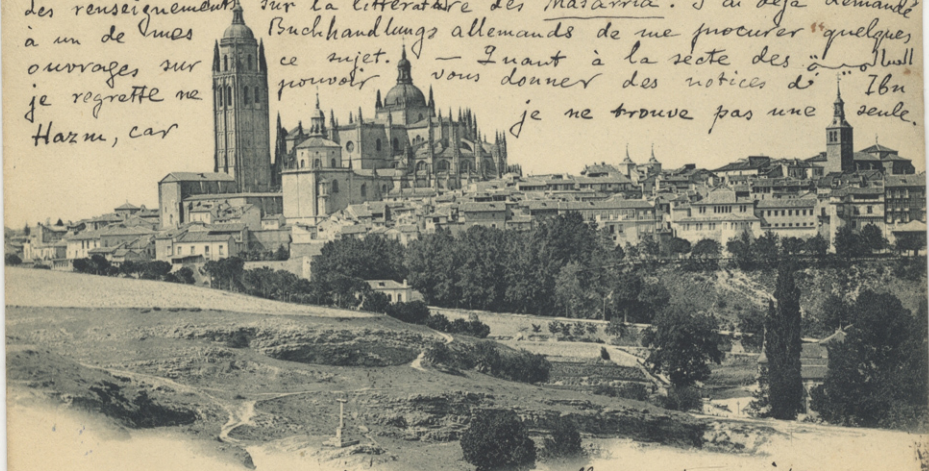 des renseignements sur la littérature des Masarria. J'ai déjà demandé
à un de mes Buchhandlungs allemands de me procurer quelques
ouvrages sur ce sujet. — Quant à la secte des
je regrette ne pouvoir vous donner des notices d' Ibn
Hazm, car je ne trouve pas une seule.